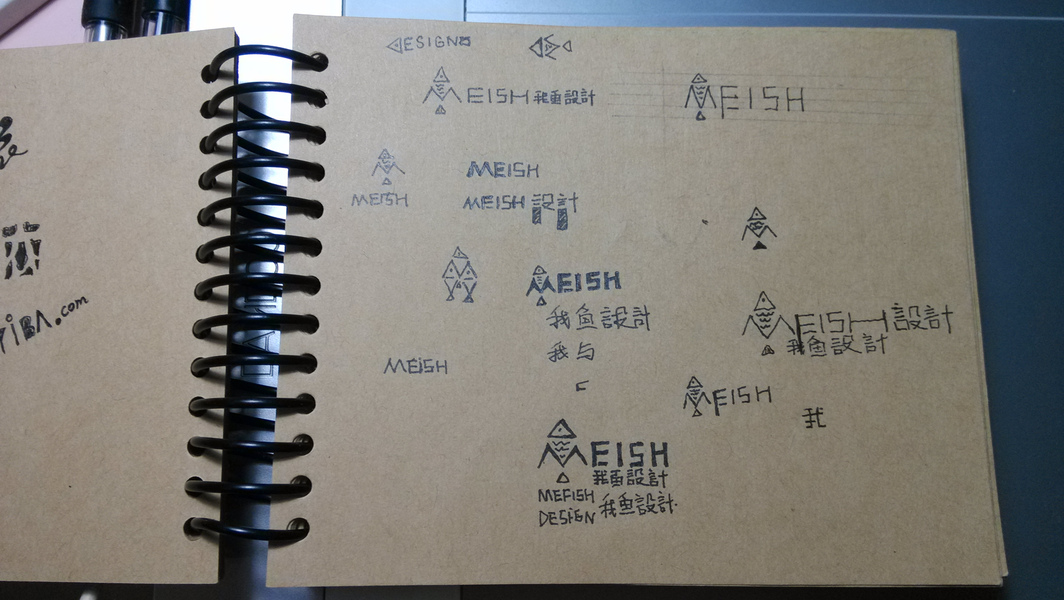 DESIGN
MEISH 我魚設計
MEISH
MEISH
MEISH
MEISH 設計
MEISH
我鱼設計
我与
MEISH
MEISH 設計
我鱼設計
MFISH
我
MEISH
我鱼設計
MEFISH
DESiGN 我鱼設計
YiBA.com